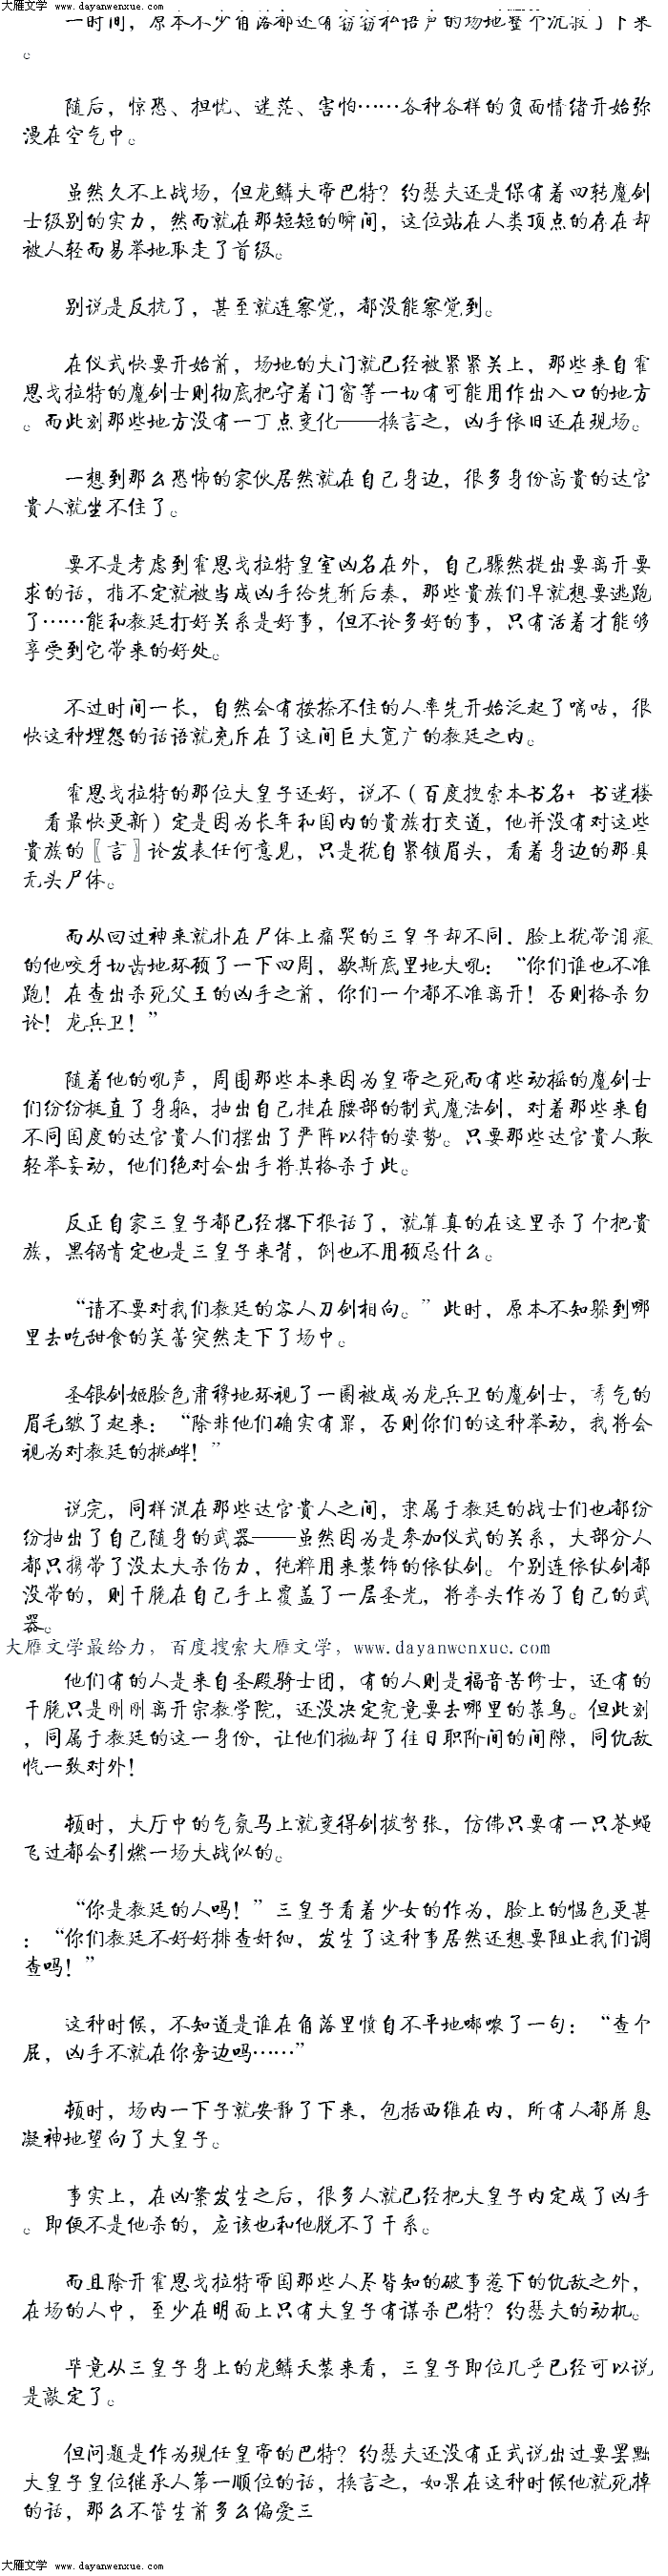 大雁文学 www.dayanwenxue.com
一时间，原本不少角落都还有窃窃私语声的场地整个沉寂了下来
。
随后，惊恐、担忧、迷茫、害怕……各种各样的负面情绪开始弥
漫在空气中。
虽然久不上战场，但龙鳞大帝巴特？约瑟夫还是保有着四转魔剑
士级别的实力，然而就在那短短的瞬间，这位站在人类顶点的存在却
被人轻而易举地取走了首级。
别说是反抗了，甚至就连察觉，都没能察觉到。
在仪式快要开始前，场地的大门就已经被紧紧关上，那些来自霍
恩戈拉特的魔剑士则彻底把守着门窗等一切有可能用作出入口的地方
。而此刻那些地方没有一丁点变化——换言之，凶手依旧还在现场。
一想到那么恐怖的家伙居然就在自己身边，很多身份高贵的达官
贵人就坐不住了。
要不是考虑到霍恩戈拉特皇室凶名在外，自己骤然提出要离开要
求的话，指不定就被当成凶手给先斩后奏，那些贵族们早就想要逃跑
了……能和教廷打好关系是好事，但不论多好的事，只有活着才能够
享受到它带来的好处。
不过时间一长，自然会有按捺不住的人率先开始泛起了嘀咕，很
快这种埋怨的话语就充斥在了这间巨大宽广的教廷之内。
霍恩戈拉特的那位大皇子还好，说不（百度搜索本书名+ 书迷楼
看最快更新）定是因为长年和国内的贵族打交道，他并没有对这些
贵族的〖言〗论发表任何意见，只是犹自紧锁眉头，看着身边的那具
无头尸体。
而从回过神来就扑在尸体上痛哭的三皇子却不同，脸上犹带泪痕
的他咬牙切齿地环顾了一下四周，歇斯底里地大吼：“你们谁也不准
跑！在查出杀死父王的凶手之前，你们一个都不准离开！否则格杀勿
论！龙兵卫！”
随着他的吼声，周围那些本来因为皇帝之死而有些动摇的魔剑士
们纷纷挺直了身躯，抽出自己挂在腰部的制式魔法剑，对着那些来自
不同国度的达官贵人们摆出了严阵以待的姿势。只要那些达官贵人敢
轻举妄动，他们绝对会出手将其格杀于此。
反正自家三皇子都已经撂下狠话了，就算真的在这里杀了个把贵
族，黑锅肯定也是三皇子来背，倒也不用顾忌什么。
“请不要对我们教廷的客人刀剑相向。”此时，原本不知躲到哪
里去吃甜食的芙蕾突然走下了场中。
圣银剑姬脸色肃穆地环视了一圈被成为龙兵卫的魔剑士，秀气的
眉毛皱了起来：“除非他们确实有罪，否则你们的这种举动，我将会
视为对教廷的挑衅！”
说完，同样混在那些达官贵人之间，隶属于教廷的战士们也都纷
纷抽出了自己随身的武器——虽然因为是参加仪式的关系，大部分人
都只携带了没太大杀伤力，纯粹用来装饰的依仗剑。个别连依仗剑都
没带的，则干脆在自己手上覆盖了一层圣光，将拳头作为了自己的武
器。
大雁文学最给力，百度搜索大雁文学，www.dayanwenxue.com
他们有的人是来自圣殿骑士团，有的人则是福音苦修士，还有的
干脆只是刚刚离开宗教学院，还没决定究竟要去哪里的菜鸟。但此刻
，同属于教廷的这一身份，让他们抛却了往日职阶间的间隙，同仇敌
忾一致对外！
顿时，大厅中的气氛马上就变得剑拔弩张，仿佛只要有一只苍蝇
飞过都会引燃一场大战似的。
“你是教廷的人吗！”三皇子看着少女的作为，脸上的愠色更甚
：“你们教廷不好好排查奸细，发生了这种事居然还想要阻止我们调
查吗！”
这种时候，不知道是谁在角落里愤自不平地嘟哝了一句：“查个
屁，凶手不就在你旁边吗……”
顿时，场内一下子就安静了下来，包括西维在内，所有人都屏息
凝神地望向了大皇子。
事实上，在凶案发生之后，很多人就已经把大皇子内定成了凶手
。即便不是他杀的，应该也和他脱不了干系。
而且除开霍恩戈拉特帝国那些人尽皆知的破事惹下的仇敌之外，
在场的人中，至少在明面上只有大皇子有谋杀巴特？约瑟夫的动机。
毕竟从三皇子身上的龙鳞天装来看，三皇子即位几乎已经可以说
是敲定了。
但问题是作为现任皇帝的巴特？约瑟夫还没有正式说出过要罢黜
大皇子皇位继承人第一顺位的话，换言之，如果在这种时候他就死掉
的话，那么不管生前多么偏爱三
大雁文学 www.dayanwenxue.com